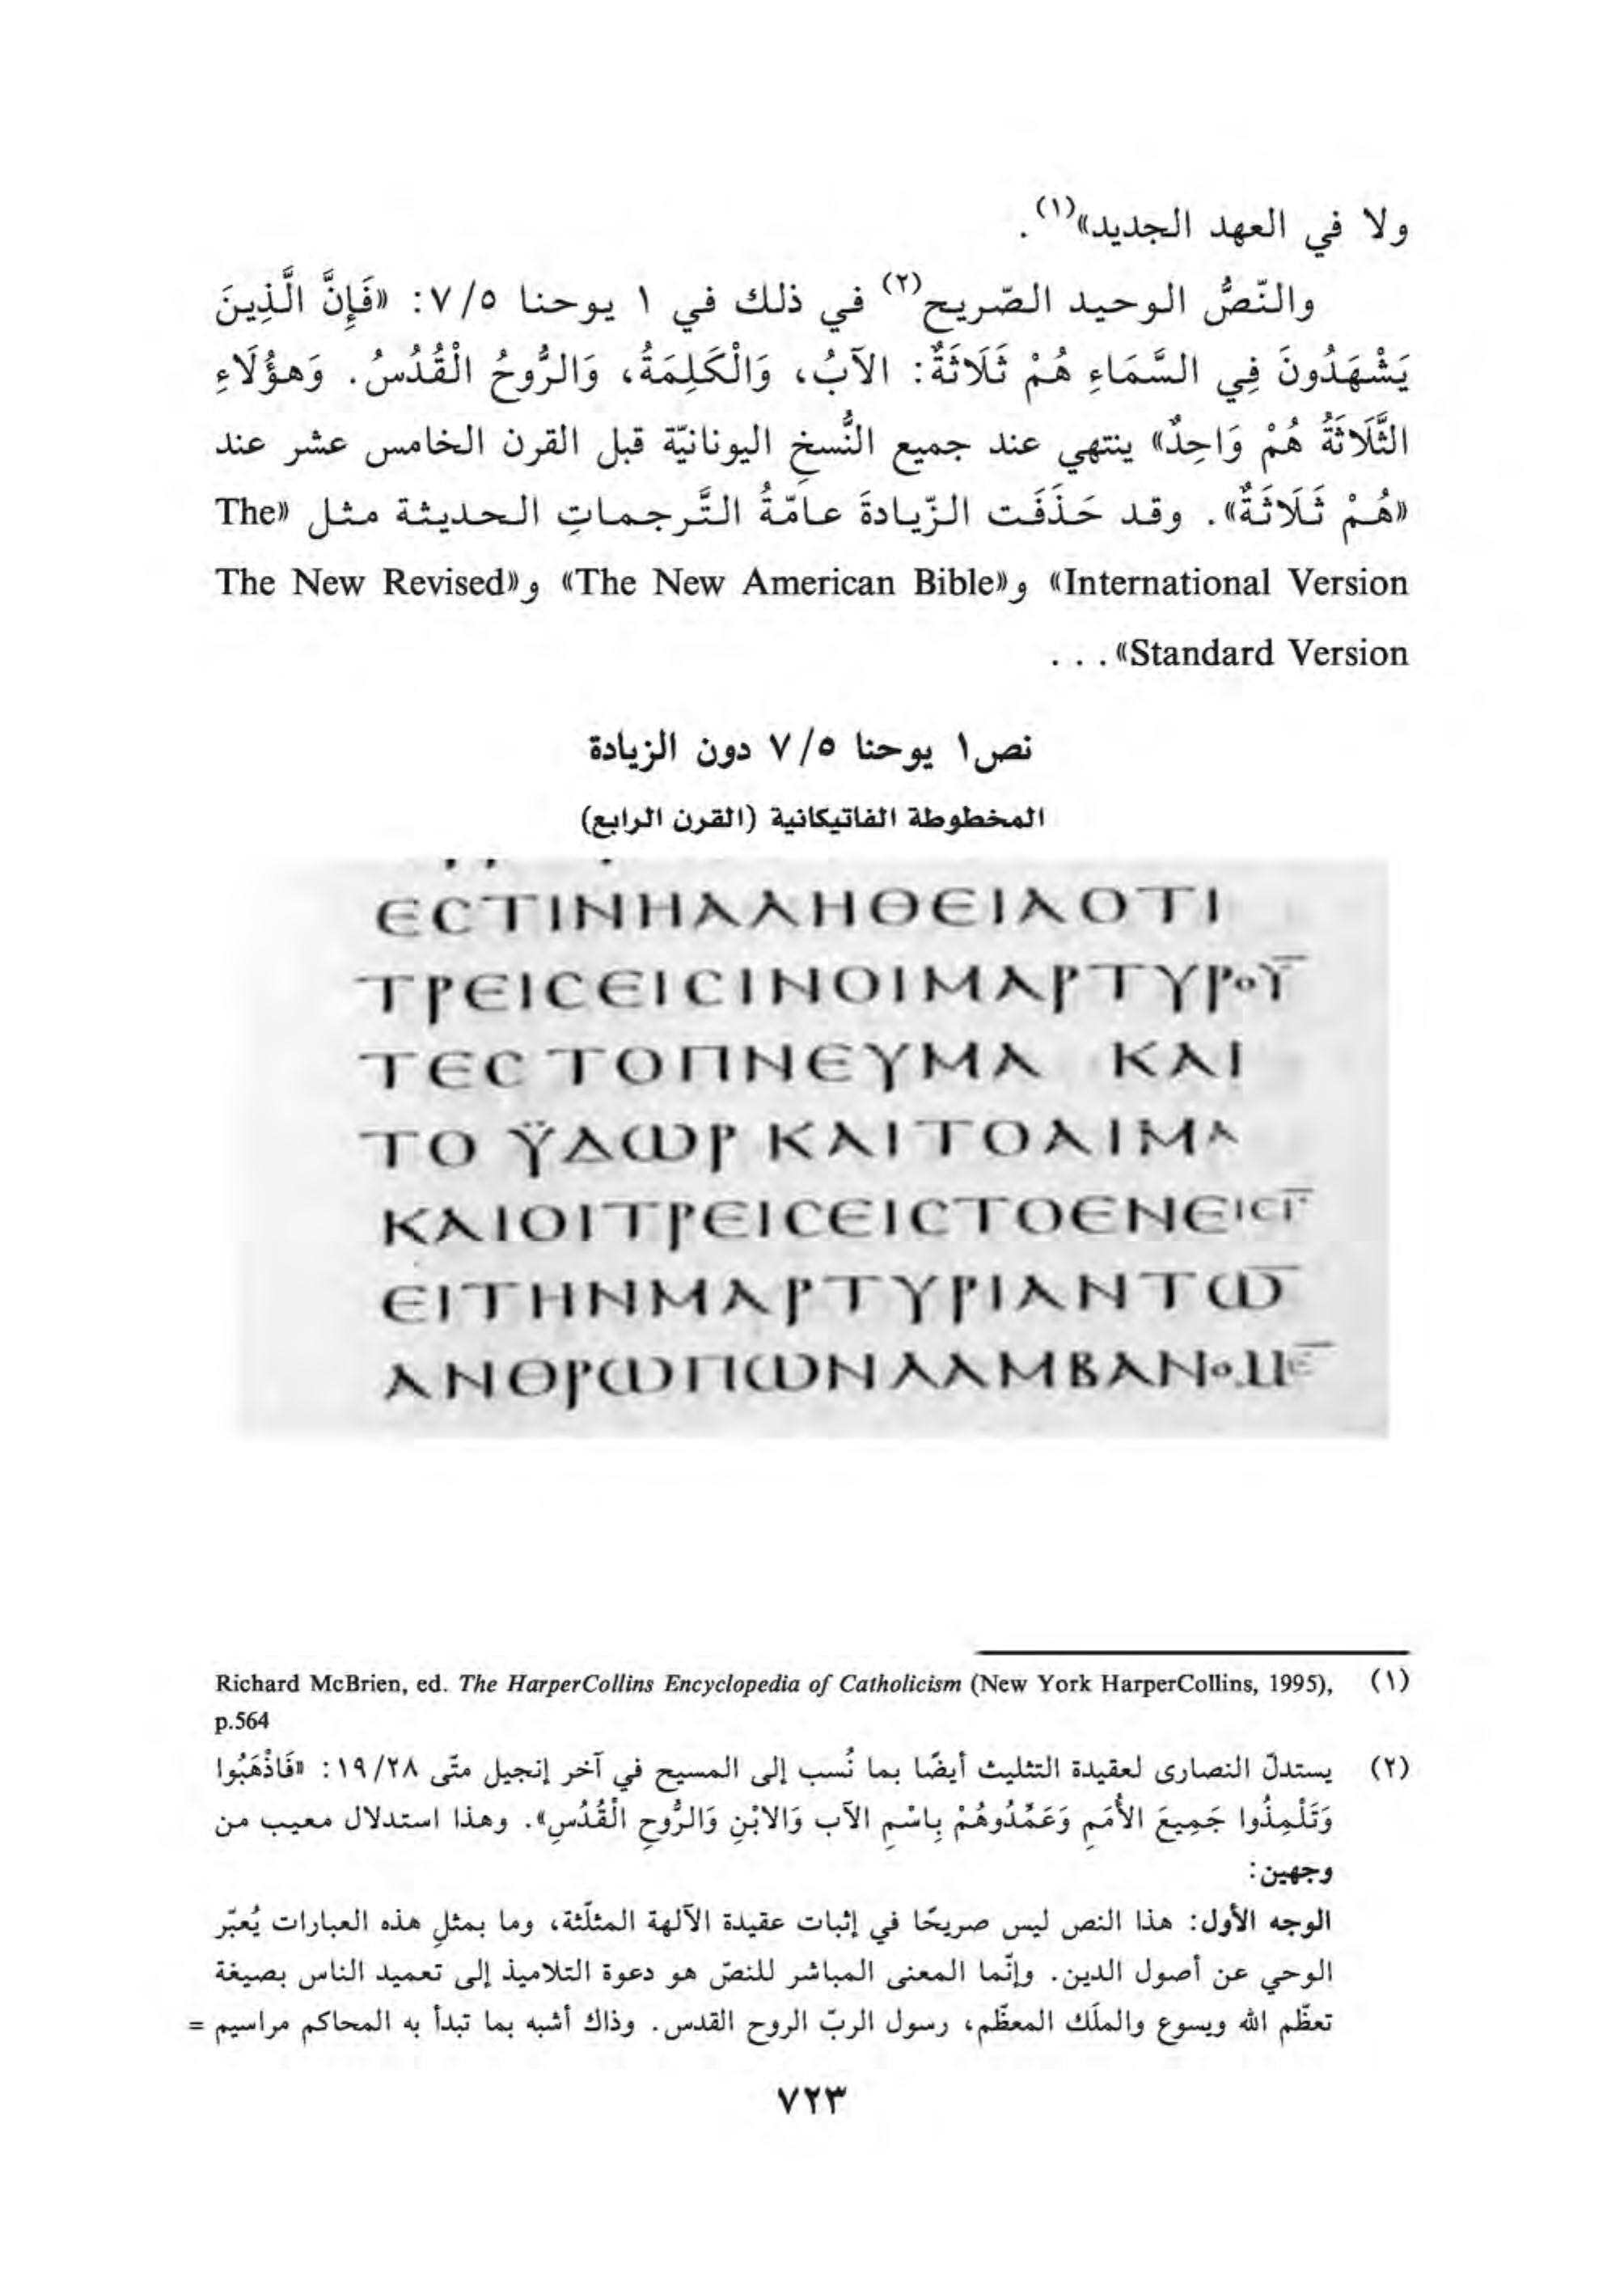 ولا في العهد الجديد»(١).
والنّصُّ الوحيد الصّريح(٢) في ذلك في ١ يوحنا ٥/ ٧: «فَإِنَّ الَّذِينَ
يَشْهَدُونَ فِي السَّمَاءِ هُمْ ثَلَاثَةٌ: الآبُ، وَالْكَلِمَةُ، وَالرُّوحُ الْقُدُسُ. وَهؤُلَاءِ
الثَّلَاثَةُ هُمْ وَاحِدٌ» ينتهي عند جميع النُّسخِ اليونانيّة قبل القرن الخامس عشر عند
«هُمْ ثَلَاثَةٌ». وقد حَذَفَت الزّيادةَ عامّةُ التَّرجماتِ الحديثة مثل «The
International Version» و«The New American Bible» و«The New Revised
Standard Version» . . .
نص١ يوحنا ٥/ ٧ دون الزيادة
المخطوطة الفاتيكانية (القرن الرابع)
ЄCΤΙΝΗΑΛΗΘЄΙΑΟΤΙ
ΤΡЄΙCЄΙCΙΝΟΙΜΑΡΤΥΡΟΥ̅
ΤЄC ΤΟΠΝЄΥΜΑ ΚΑΙ
ΤΟ ΫΔWΡ ΚΑΙΤΟΑΙΜΑ
ΚΑΙΟΙΤΡЄΙCЄΙCΤΟЄΝЄΙCΙ̅
ЄΙΤΗΝΜΑΡΤΥΡΙΑΝΤW̅
ΑΝΘΡWΠWΝΛΑΜΒΑΝΟΜЄ̅
(١) Richard McBrien, ed. The HarperCollins Encyclopedia of Catholicism (New York HarperCollins, 1995),
p.564
(٢) يستدلّ النصارى لعقيدة التثليث أيضًا بما نُسب إلى المسيح في آخر إنجيل متّى ٢٨/ ١٩: «فَاذْهَبُوا
وَتَلْمِذُوا جَمِيعَ الأُمَمِ وَعَمِّدُوهُمْ بِاسْمِ الآب وَالابْنِ وَالرُّوحِ الْقُدُسِ». وهذا استدلال معيب من
وجهين:
الوجه الأول: هذا النص ليس صريحًا في إثبات عقيدة الآلهة المثلّثة، وما بمثلِ هذه العبارات يُعبّر
الوحي عن أصول الدين. وإنّما المعنى المباشر للنصّ هو دعوة التلاميذ إلى تعميد الناس بصيغة
تعظّم الله ويسوع والملَك المعظّم، رسول الربّ الروح القدس. وذاك أشبه بما تبدأ به المحاكم مراسيم =
٧٢٣